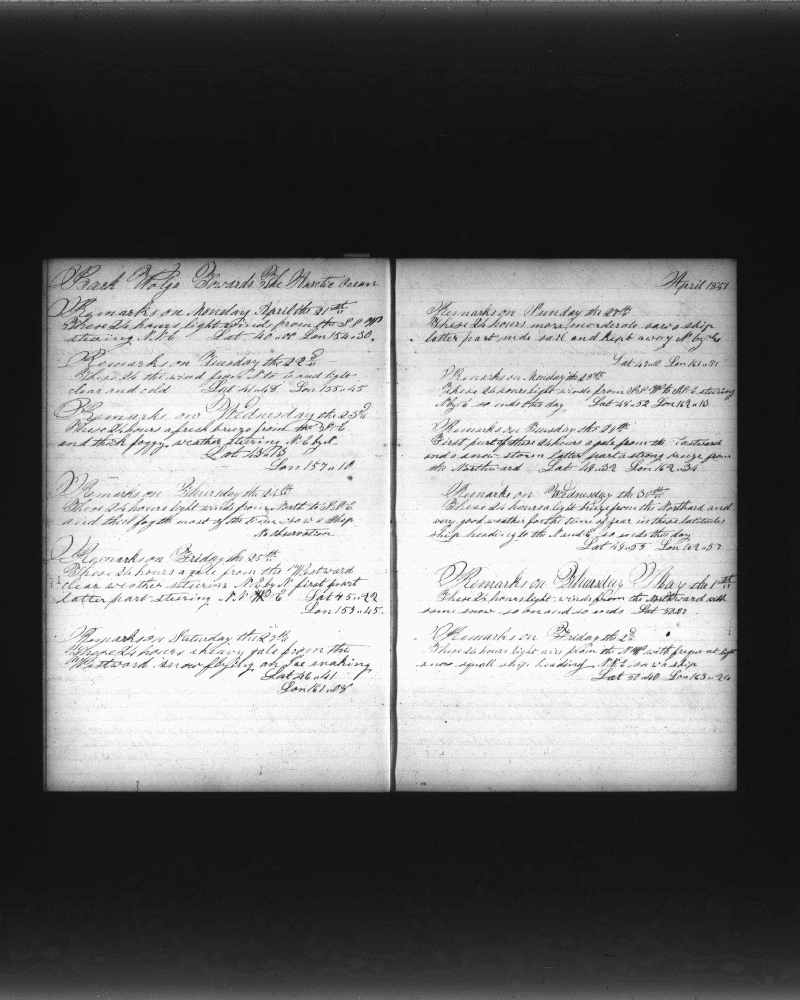 Bark Wolga Towards The Arctic Ocean
Remarks on Monday April the 21st
These 24 hours light winds from the S.S.W
steering N.N.E Lat 40..00 Lon 154..30.
Remarks on Tuesday the 22d
These 24 the wind from N to E and light
clear and cold Lat 41..48 Lon 155..45
Remarks on Wednesday the 23d
These 24 hours a fresh breeze from the S.E
and thick foggy weather stering N.E by N.
Lat 43..13
Lon 157..10
Remarks on Thursday the 24th
These 24 hours light winds from North to S.S.E
and thick fog the most of the time saw a Ship
No observation
Remarks on Friday the 25th
These 24 hours a gale from the Westward
clear weather steerin N.E by N first part
latter part steering N.N.E Lat 45..22
Lon 153..45.
Remarks on Saturday the 26th
These 24 hours a heavy gale from the
Westward snow flying an Ice making
Lat 46..41
Lon 161..08
April 1851
Remarks on Sunday the 27th
These 24 hours more moderate saw a ship
latter part made sail and kept away N. by E
Lat 47..0 Lon 161..51
Remarks on Monday the 28th
These 24 hours light winds from S.S.W to S.S.E steering
N by E so ends this day Lat 48..52 Lon 162..13
Remarks on Tuesday the 29th
First part of these 24 hours a gale from the Eastward
and a snow storm latter part a strong breeze from
the Northward Lat 49..32 Lon 162..34
Remarks on Wednesday the 30th
These 24 hours a light breeze from the Northard and
very good weather for the time of year in these latitudes
ship heading to the N and E so ends this day
Lat 49..53 Lon 162..57
Remarks on Thursday May the 1st
These 24 hours light winds from the Northward with
some snow so on and so ends Lat 50..07
Remarks on Friday the 2d
These 24 hours light airs from the N.W with frequent light
snow squall ship heading N.N.E saw a ship
Lat 50..40 Lon 163..24